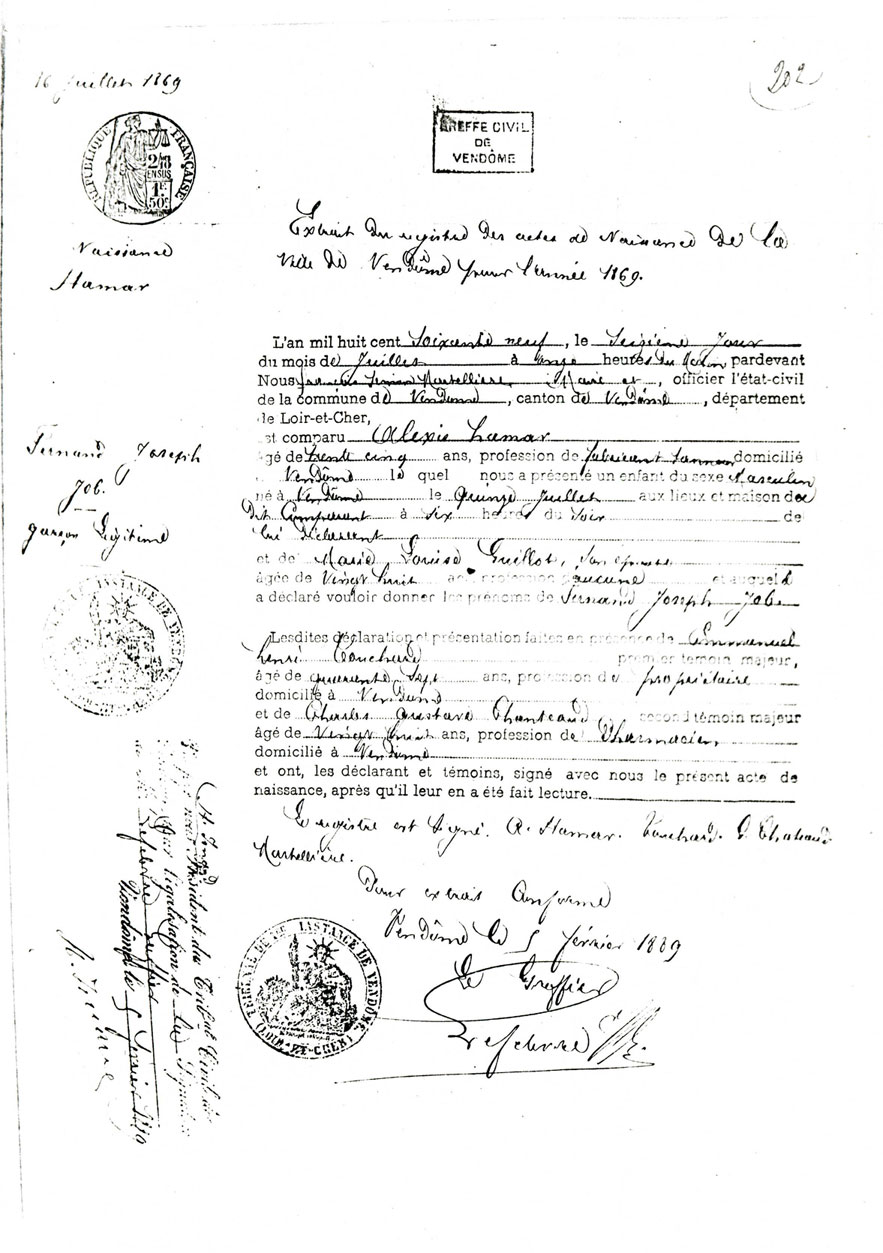 16 Juillet 1869
202
RÉPUBLIQUE FRANÇAISE
2/10
EN SUS
1F
50c
GREFFE CIVIL
DE
VENDÔME
Naissance
Hamar
Extrait du registre des actes de Naissance de la
Ville de Vendôme pour l'année 1869.
L'an mil huit cent Soixante neuf, le Seizième Jour
du mois de Juillet à onze heures du Matin pardevant
Nous François Martellière, Maire et, officier l'état-civil
de la commune de Vendôme, canton de Vendôme, département
de Loir-et-Cher,
est comparu Alexis hamar
âgé de trente cinq ans, profession de fabricant tanneur domicilié
Vendôme le quel nous a présenté un enfant du sexe Masculin
né à Vendôme le Quinze Juillet aux lieux et maison de
dit Comparant à Six heures du Soir de
lui déclarant
et de Marie Louise Guillot, Son épouse
âgée de Vingt huit ans, profession aucune et auquel il
a déclaré vouloir donner les prénoms de Fernand Joseph Job.
Fernand Joseph
Job.
garçon Légitime
Lesdites déclaration et présentation faites en présence de Emmanuel
henri Touchard premier témoin majeur,
âgé de quarante Sept ans, profession de propriétaire
domicilié à Vendôme
et de Charles Gustave Chanteaud, second témoin majeur
âgé de Vingt huit ans, profession de Pharmacien,
domicilié à Vendôme
et ont, les déclarant et témoins, signé avec nous le présent acte de
naissance, après qu'il leur en a été fait lecture.
Le registre est Signé. A. Hamar. Touchard.
Martellière.
Pour extrait Conforme
Vendôme le 5 février 1889
Le Greffier
Lefebvre
TRIBUNAL DE 1RE INSTANCE DE VENDÔME
(LOIR-ET-CHER)
INSTANCE DE VENDÔME
Président du Tribunal Civil de
pour légalisation de la Signature
Lefebvre Greffier
Vendôme le 5 février